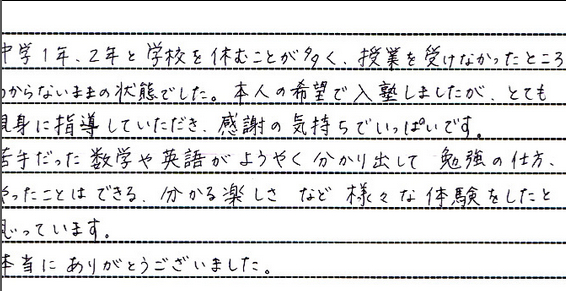 中学1年、2年と学校を休むことが多く、授業を受けなかったところ
わからないままの状態でした。本人の希望で入塾しましたが、とても
親身に指導していただき、感謝の気持ちでいっぱいです。
苦手だった数学や英語がようやく分かり出して 勉強の仕方、
やったことはできる、分かる楽しさ など 様々な体験をしたと
思っています。
本当にありがとうございました。